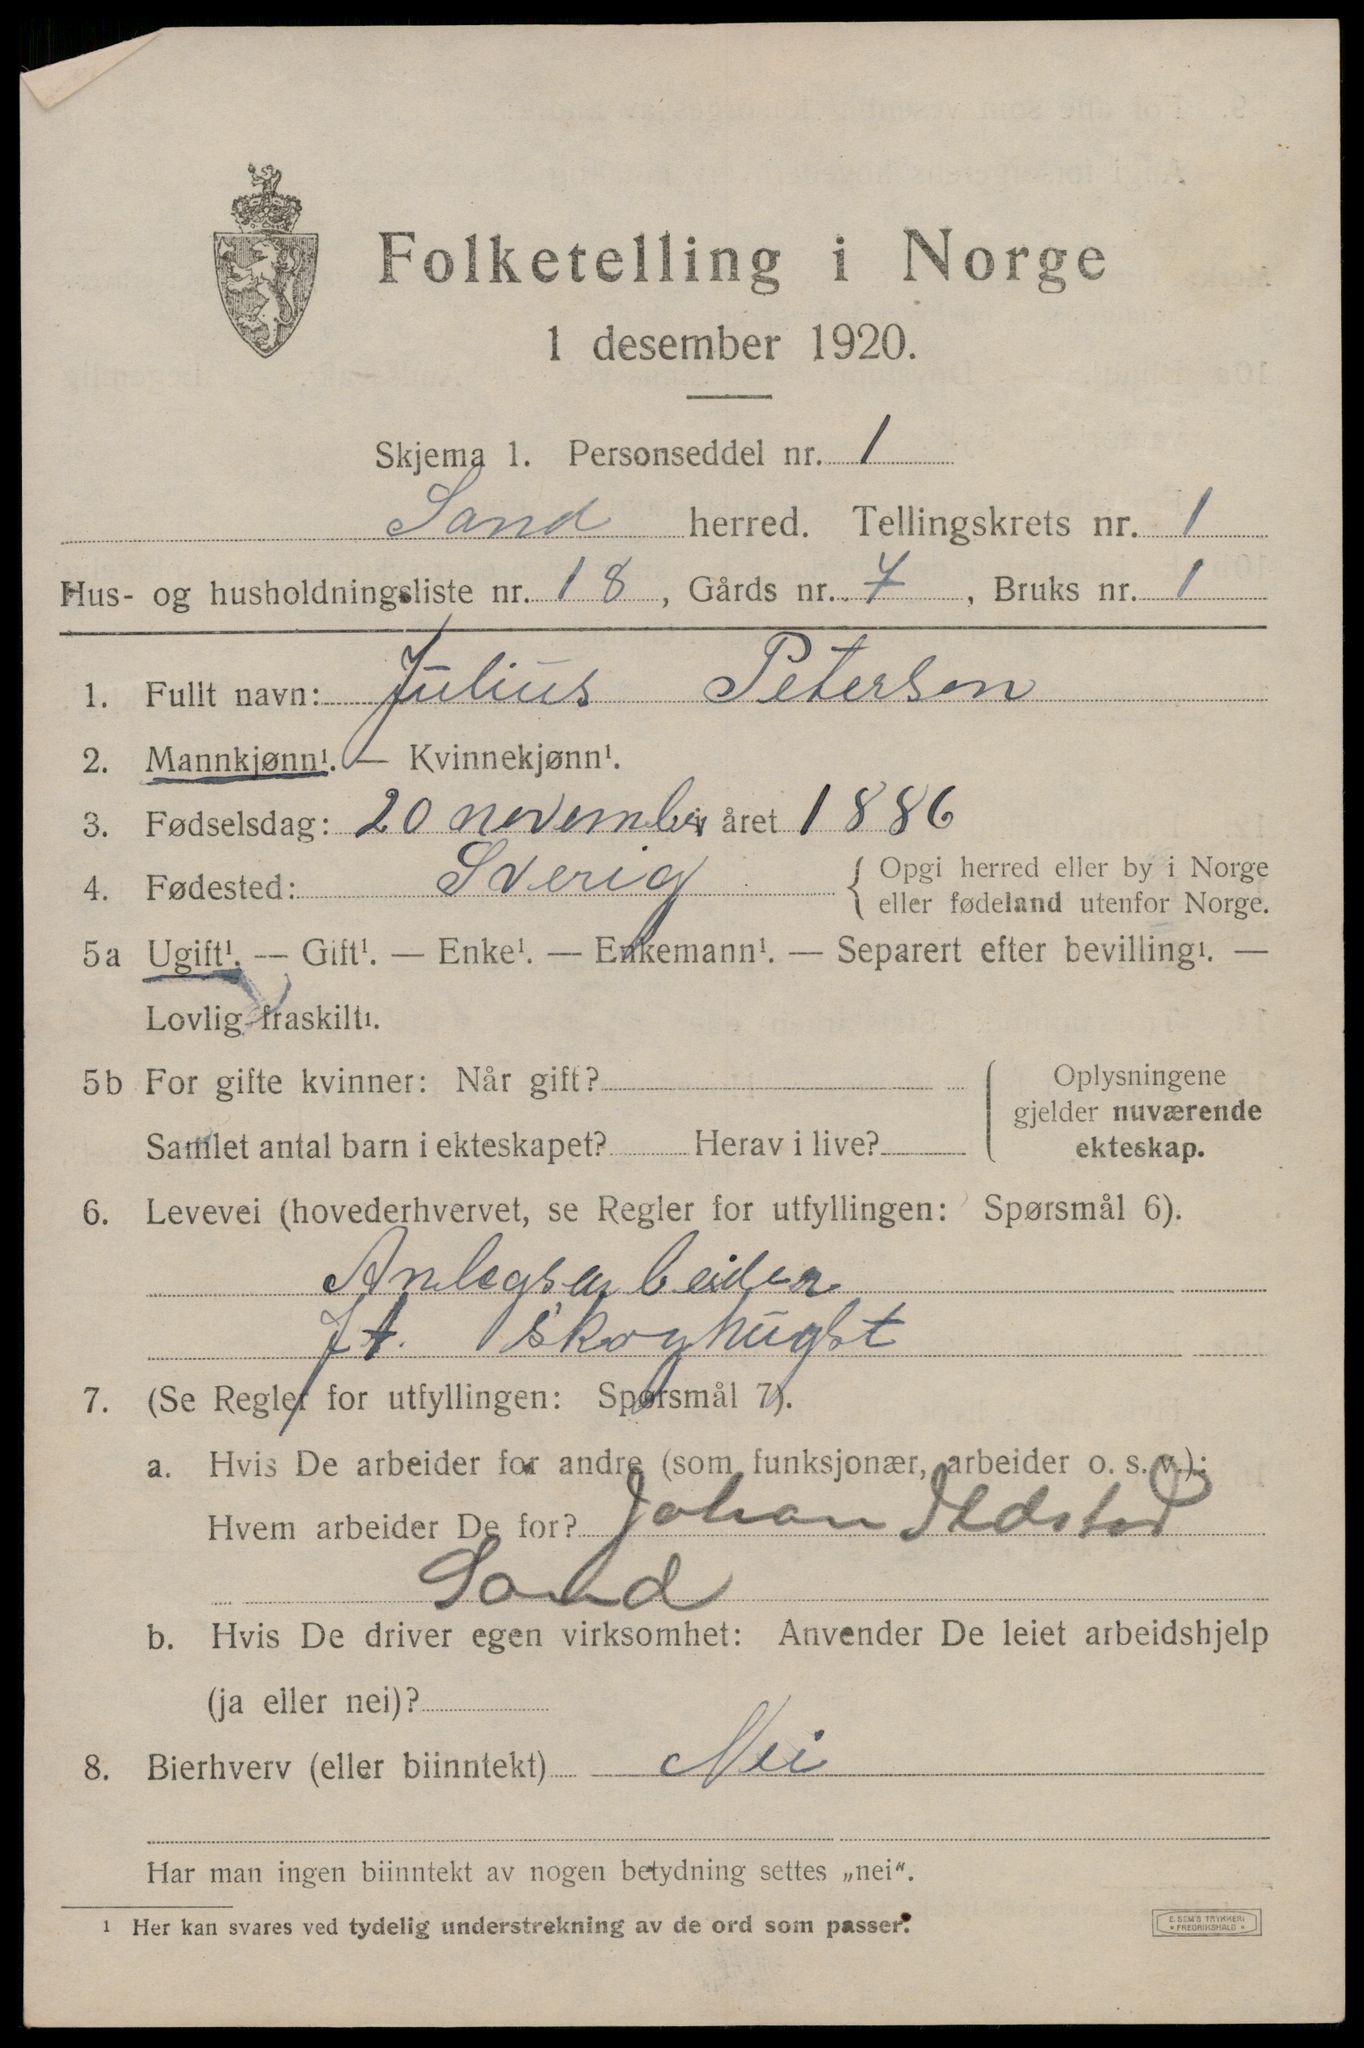 Folketelling i Norge
1 desember 1920.
Skjema 1. Personseddel nr. 1
Sand herred. Tellingskrets nr. 1
Hus- og husholdningsliste nr. 18, Gårds nr. 7, Bruks nr. 1
1. Fullt navn: Julius Peterson
2. Mannkjønn¹. — Kvinnekjønn¹.
3. Fødselsdag: 20 november året 1886
4. Fødested: Sverig { Opgi herred eller by i Norge
eller fødeland utenfor Norge.
5a Ugift¹. — Gift¹. — Enke¹. — Enkemann¹. — Separert efter bevilling¹. —
Lovlig fraskilt¹.
5b For gifte kvinner: Når gift?
Samlet antal barn i ekteskapet? Herav i live?
Oplysningene
gjelder nuværende
ekteskap.
6. Levevei (hovederhvervet, se Regler for utfyllingen: Spørsmål 6).
Anlegsarbeider
ft. skoghugst
7. (Se Regler for utfyllingen: Spørsmål 7).
a. Hvis De arbeider for andre (som funksjonær, arbeider o. s. v.):
Hvem arbeider De for? Johan
Sand
b. Hvis De driver egen virksomhet: Anvender De leiet arbeidshjelp
(ja eller nei)?
8. Bierhverv (eller biinntekt) Nei
Har man ingen biinntekt av nogen betydning settes „nei“.
¹ Her kan svares ved tydelig understrekning av de ord som passer.
E. SEM'S TRYKKERI
* FREDRIKSHALD *